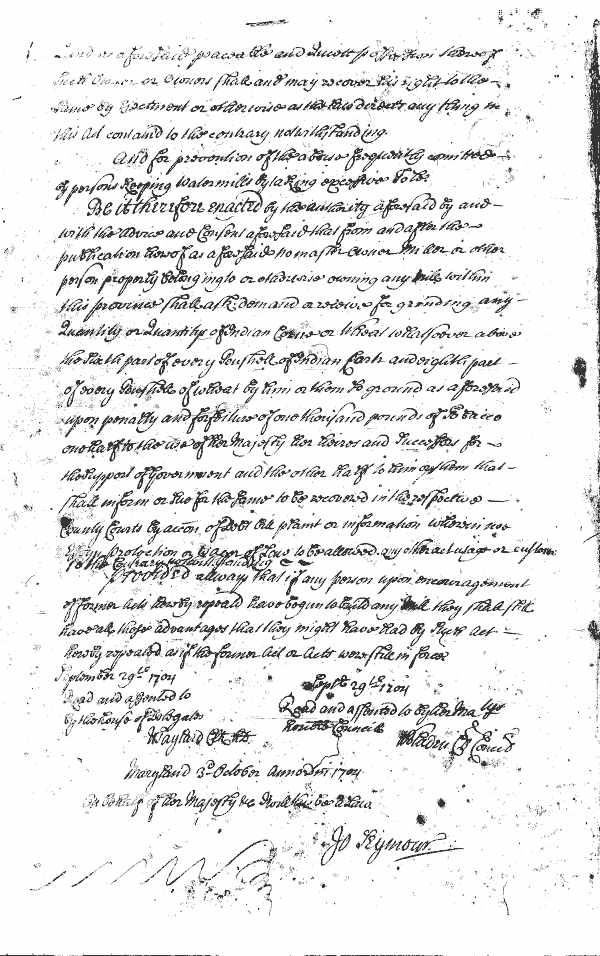 Land as aforesaid peaceable and Quiett possession thereof
such Owner or Owners shall and may recover his right to the
same by Ejectment or otherwise as the Law directs any thing in
this Act containd to the contrary notwithstanding.
And for prevention of the abuse frequently comitted
by persons keeping Watermills by taking excessive Tole
Be it therefore enacted by the authority aforesaid by and
with the advice and Consent aforesaid that from and after the
publication hereof as aforesaid no master Owner Miller or other
person properly belonging to or otherwise owning any Mill within
this province shall ask demand or receive for grinding any
Quantity or Quantitys of Indian Corne or Wheat whatsoever above
the sixth part of every Bushell of Indian Corn and eighth part
of every Bushell of wheat by him or them so ground as aforesaid
upon penalty and forfeiture of one thousand pounds of Tobacco
one half to the use of her Majesty her heires and Successors for
the support of Government and the other half to him or them that
shall inform or sue for the same to be recovered in the respective
County Courts by accon of debt bill plaint or information wherein noe
Essoyn protection or wager of Law to be allowed any other act usage or custom
to the Contrary notwithstanding
PROVIDED allways that if any person upon encouragement
of former Acts hereby repeald have begun to build any Mill they shall still
have all those advantages that they might have had by such Act
hereby repealed as if the former Act or Acts were still in force
September 29th 1704
Read and assented to
by the house of Delegates
W Taylard Cl h D
Septr 29th 1704
Read and assented to by her Matys
honble Councill
W Bladen Cl Concil
Maryland 3d October Anno Dni 1704
On behalf of her Majesty &c I will this be a Law
Jo Seymour